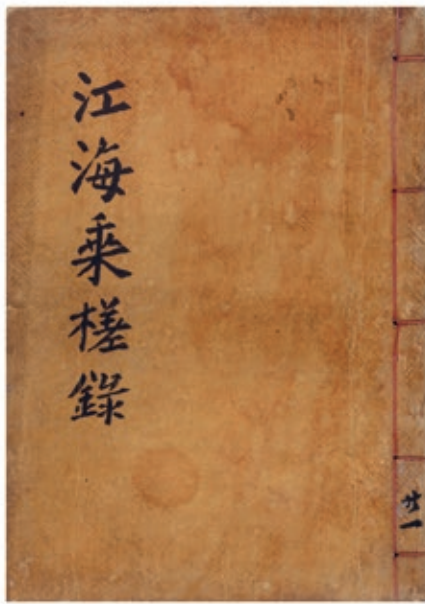 江海乗槎錄
廿一